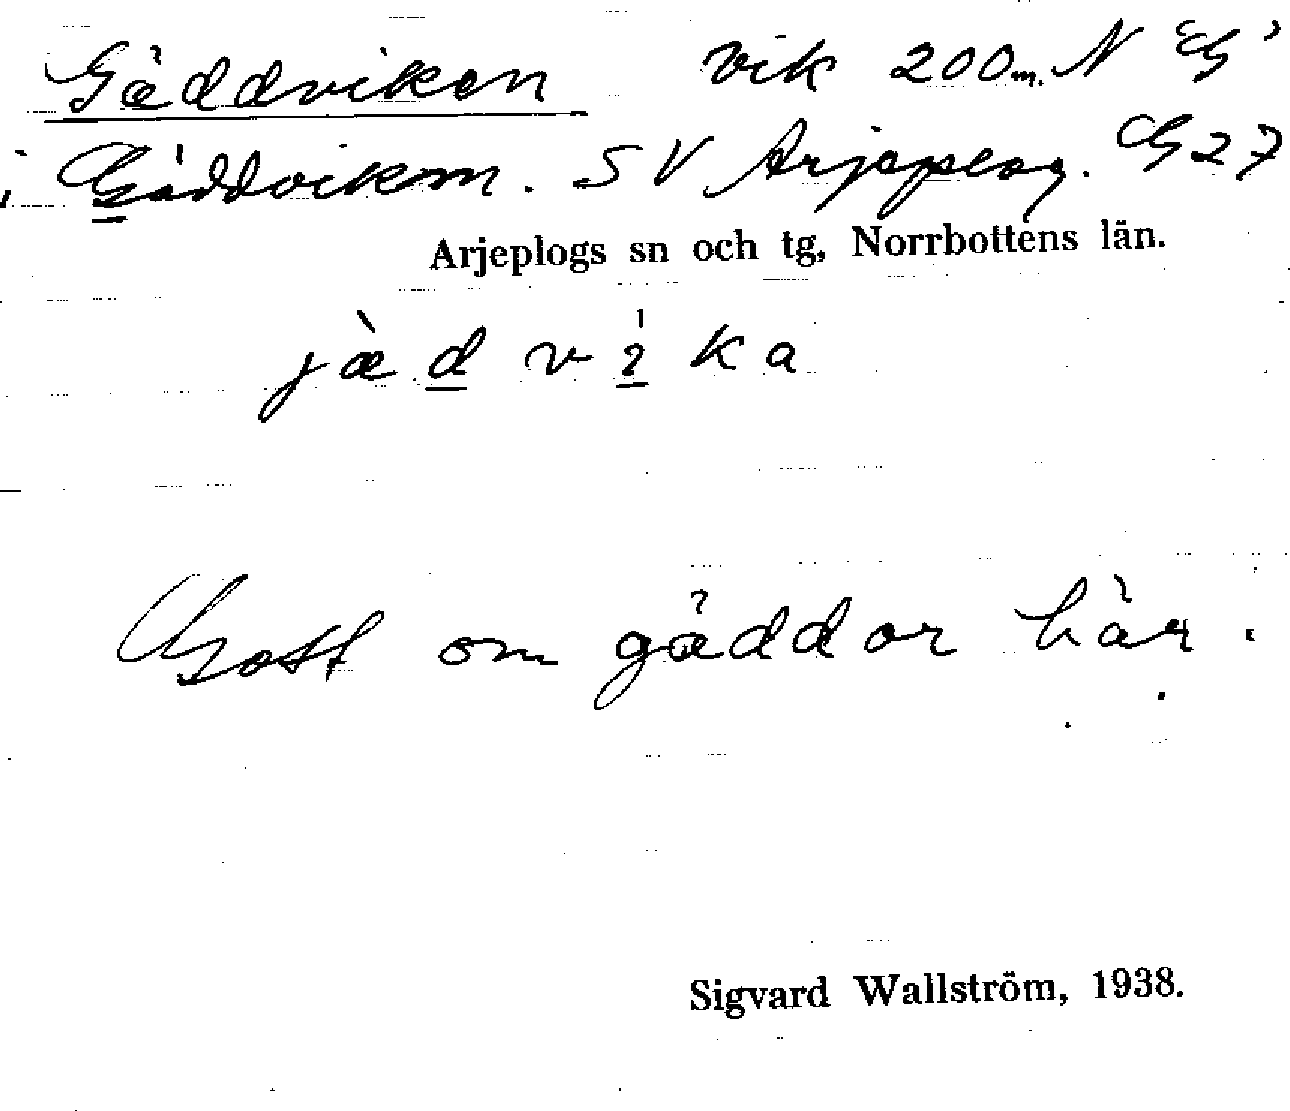 Gäddviken vik 200 m. N G
i Gäddviken. SV Arjeplog. G 27
Arjeplogs sn och tg, Norrbottens län.
jæ̀d vi̍ka
Gott om gäddor här.
Sigvard Wallström, 1938.